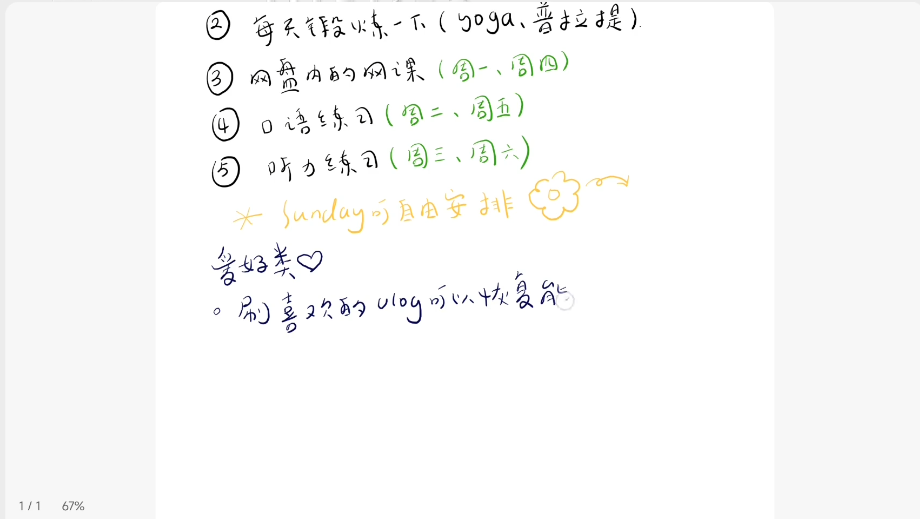 ② 每天锻炼一下(yoga、普拉提).
③ 网盘内的网课(周一、周四)
④ 口语练习(周二、周五)
⑤ 听力练习(周三、周六)
* Sunday可自由安排
爱好类♡
。刷喜欢的vlog可以恢复能
1 / 1 67%